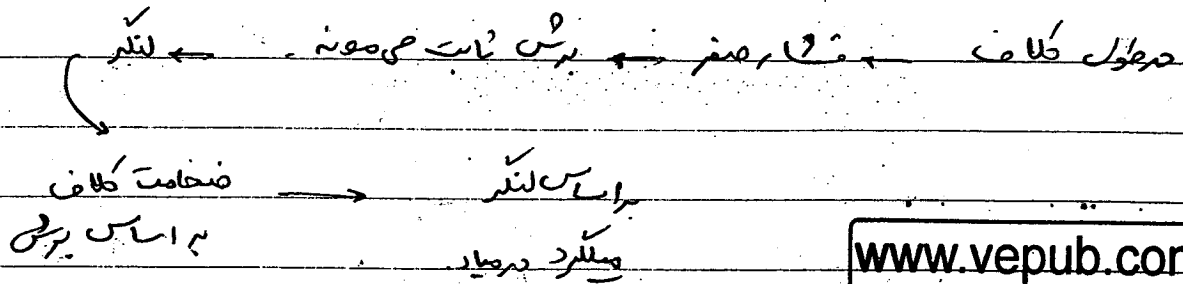 در طول کلاف ← فشار صفر ← برش ثابت می‌مونه . ← لنگر
ضخامت کلاف → براساس لنگر
براساس برش میلگرد درمیاد.
www.vepub.com